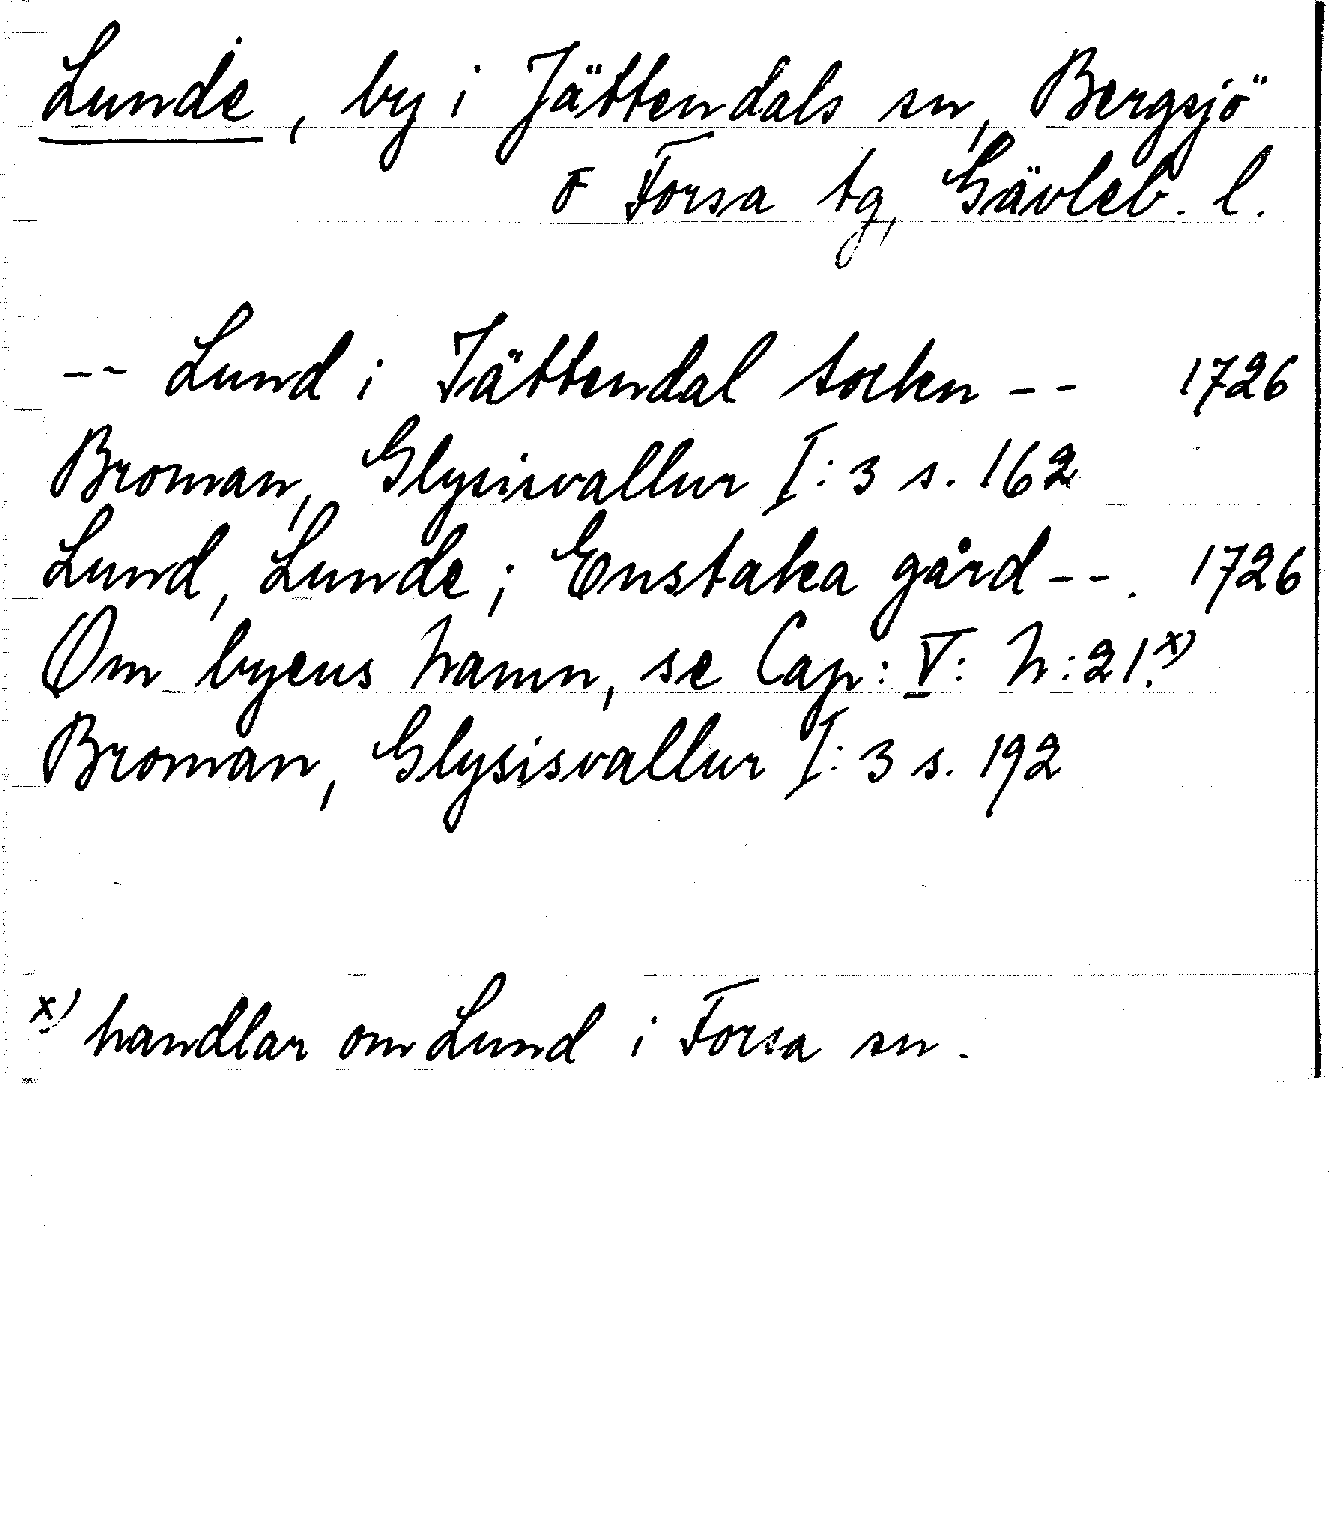 Lunde, by i Jättendals sn, Bergsjö
o Forsa tg, Gävleb. l.
-- Lund i Jättendal socken -- 1726
Broman, Glysisvallur I:3 s. 162
Lund, Lunde; Enstaka gård --. 1726
Om byens hamn, se Cap: V: h:21.x)
Broman, Glysisvallur I:3 s. 192
x) handlar om Lund i Forsa sn.